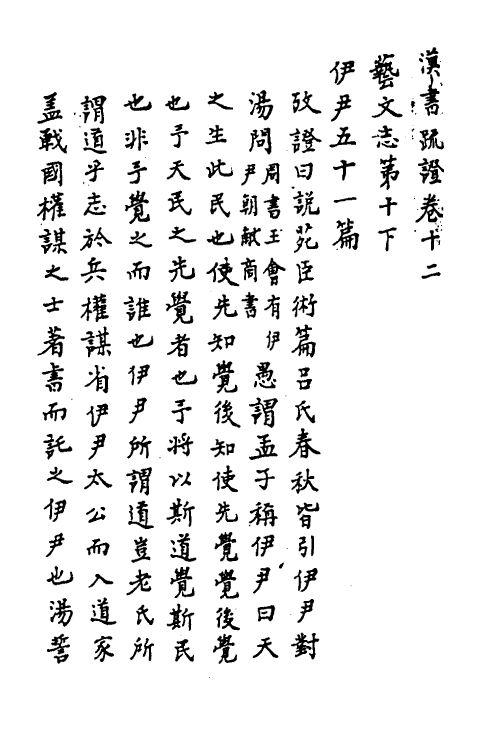 漢書疏證卷十二
藝文志第十下
伊尹五十一篇
攷證曰説苑臣術篇呂氏春秋皆引伊尹對
湯問周書王會有伊尹朝獻商書愚謂孟子稱伊尹曰天
之生此民也使先知覺後知使先覺覺後覺
也予天民之先覺者也予將以斯道覺斯民
也非予覺之而誰也伊尹所謂道豈老氏所
謂道乎志於兵權謀省伊尹太公而入道家
盖戰國權謀之士著書而託之伊尹也湯誓